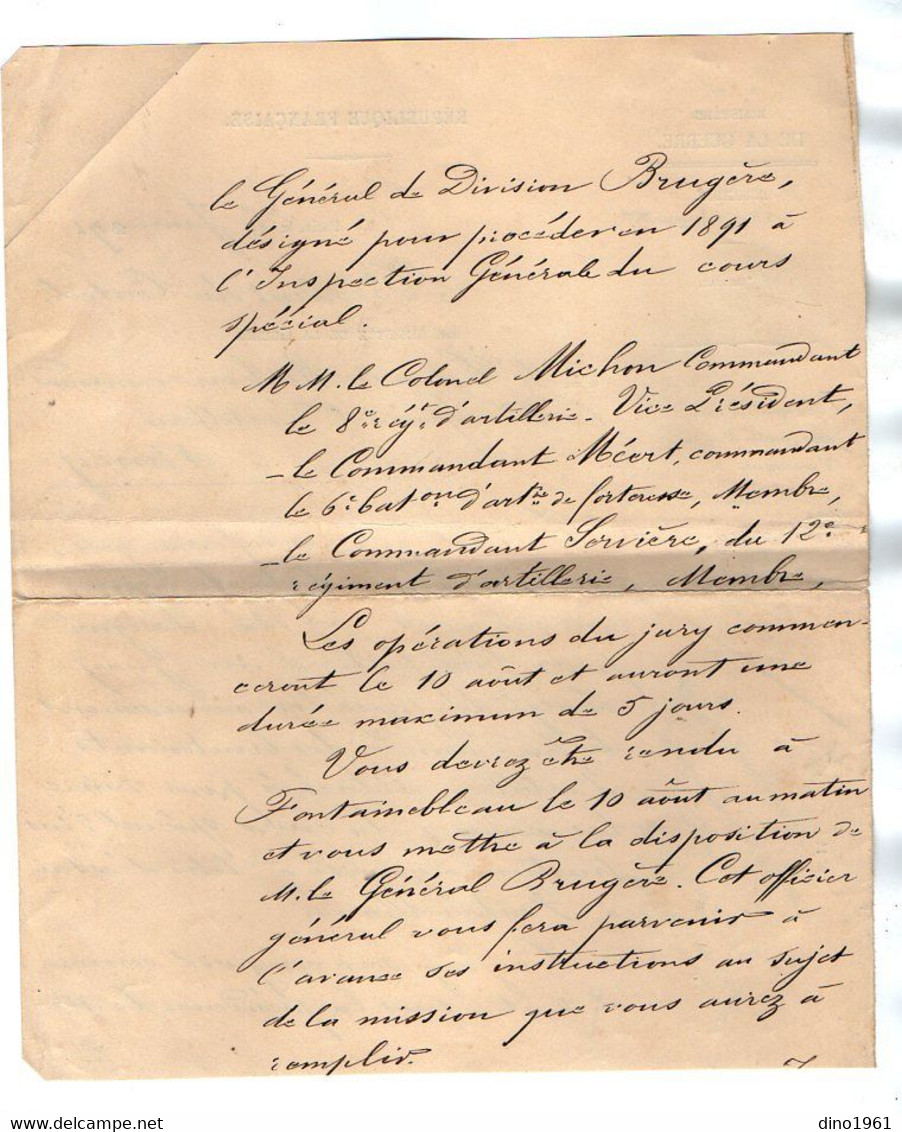 le Général de Division Brugère,
désigné pour procéder en 1891 à
l'Inspection Générale du cours
spécial.
M M. le Colonel Michon Commandant
le 8e régt d'artillerie - Vice Président,
- le Commandant Méert, commandant
le 6e batone d'artrie de forteresse, Membre,
- le Commandant Servière, du 12e
régiment d'artillerie, Membre,
Les opérations du jury commen-
ceront le 10 août et auront une
durée maximum de 5 jours.
Vous devrez être rendu à
Fontainebleau le 10 août au matin
et vous mettre à la disposition de
M. le Général Brugère. Cet officier
général vous fera parvenir à
l'avance ses instructions au sujet
de la mission que vous aurez à
remplir.
RÉPUBLIQUE FRANÇAISE.
MINISTÈRE
DE LA GUERRE.
dino1961